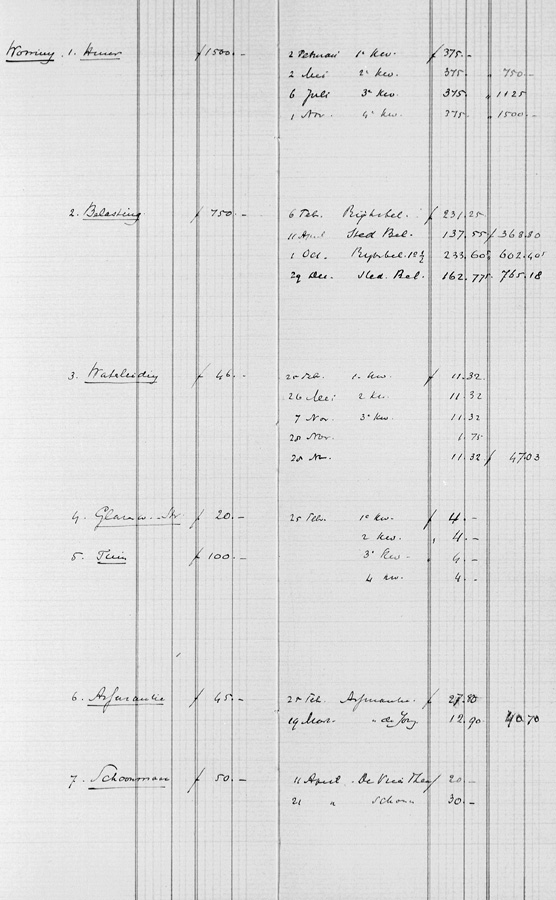 Woning. 1. Huur ƒ 1500.- 2 Februari 1e Kw. ƒ 375.-
2 Mei 2e Kw. 375. " 750.-
6 Juli 3e Kw. 375. " 1125
1 Nov. 4e Kw. 375.- " 1500.-
2. Belasting ƒ 750.- 6 Feb. Rijksbel. ƒ 231.25
11 April Sted Bel. 137.55 ƒ 368.80
1 Oct. Rijksbel. 233.60⁵ 602.40⁵
29 Dec. Sted. Bel. 162.77⁵ 765.18
3. Waterleiding ƒ 46.- 25 Feb. 1. Kw. ƒ 11.32
26 Mei 2 Kw. 11.32
7 Nov. 3e Kw. 11.32
28 Nov. 1.75
28 Nov. 11.32 ƒ 47.03
4. ƒ 20.- 25 Feb. 1e Kw. ƒ 4.-
2 Kw. " 4.-
5. Tuin ƒ 100.- 3e Kw. 4.-
4 Kw. 4.-
6. Assurantie ƒ 45.- 25 Feb. Assurantie ƒ 27.80
19 Maart " de Jong 12.90 40.70
7. Schoonmaak ƒ 50.- 11 April De 20.-
21 " Schoonm 30.-